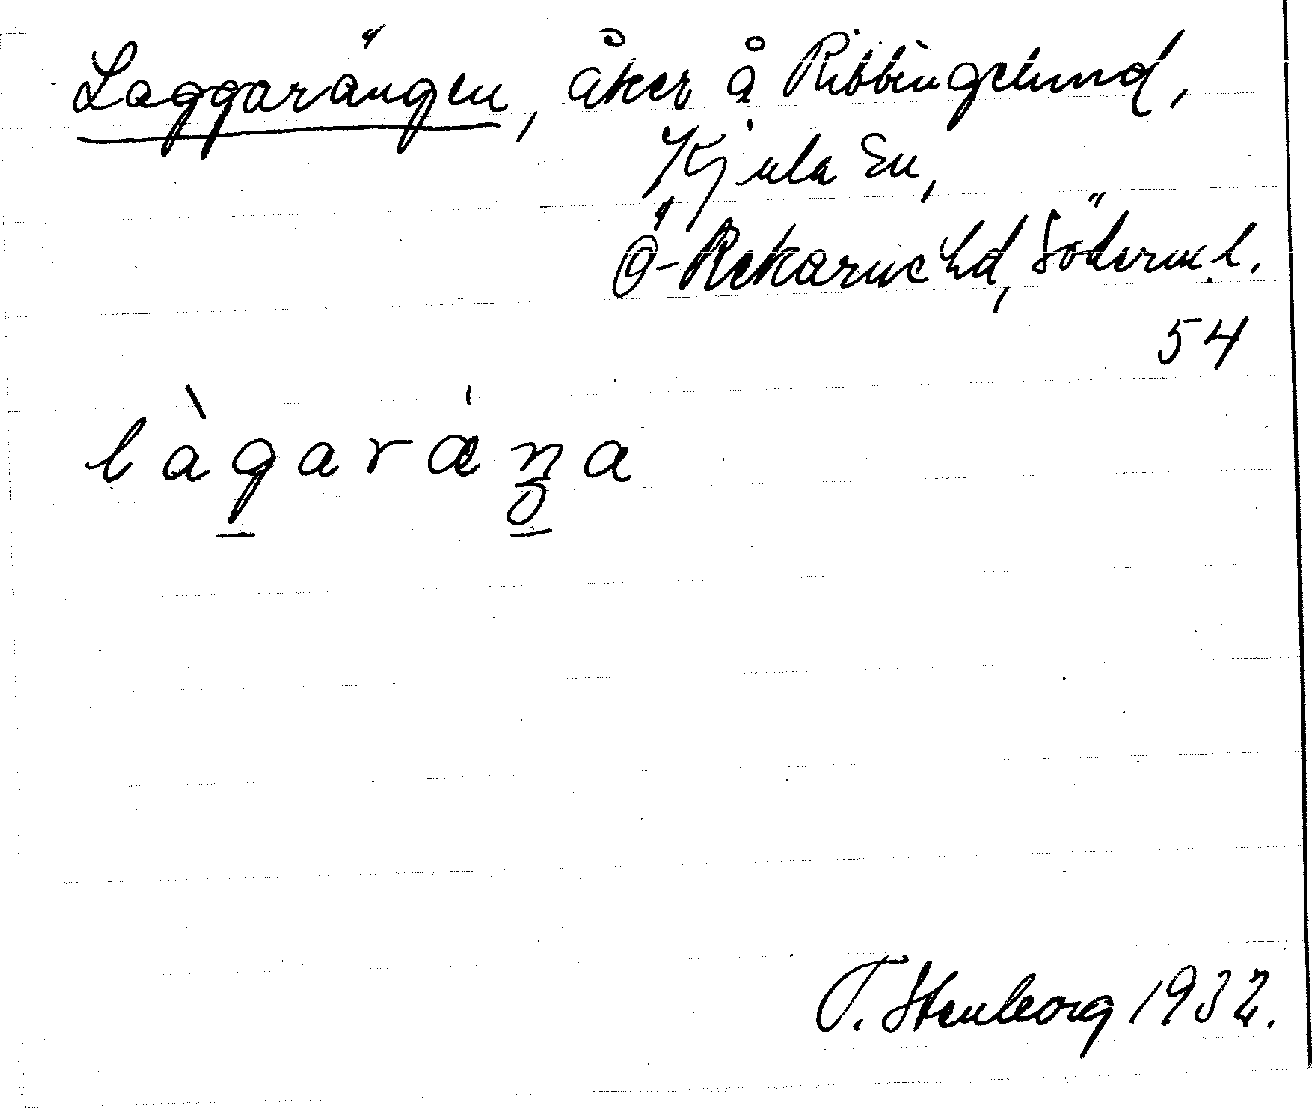 Laggarängen, åker å Ribbingelund,
Kjula Sn,
Ö-Rekarne hd, Söderml.
54
T. Stenborg 1932.